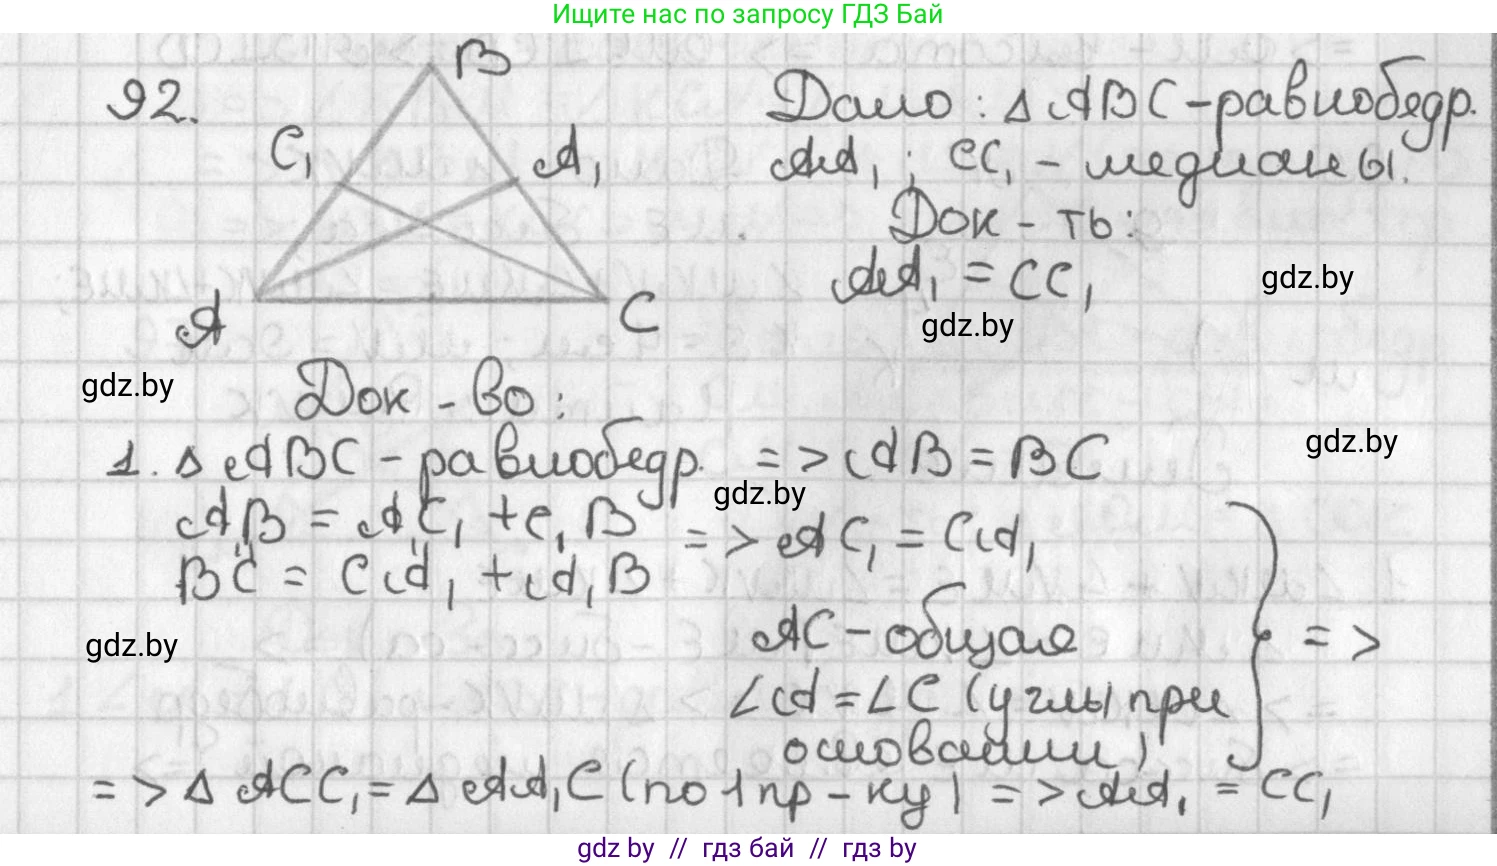 Ищите нас по запросу ГДЗ Бай
92.
B
C₁
A₁
A
C
Дано: Δ ABC - равнобедр.
AA₁; CC₁ - медианы.
Док-ть:
AA₁ = CC₁
gdz.by
gdz.by
gdz.by
Док-во:
1. Δ ABC - равнобедр. => AB = BC
gdz.by
gdz.by
AB = AC₁ + C₁B
BC = CA₁ + A₁B
=> AC₁ = CA₁
gdz.by
AC - общая
=>
∠A = ∠C (углы при
основании)
=> Δ ACC₁ = Δ AA₁C (по 1 пр-ку) => AA₁ = CC₁
gdz by // гдз бай // гдз by